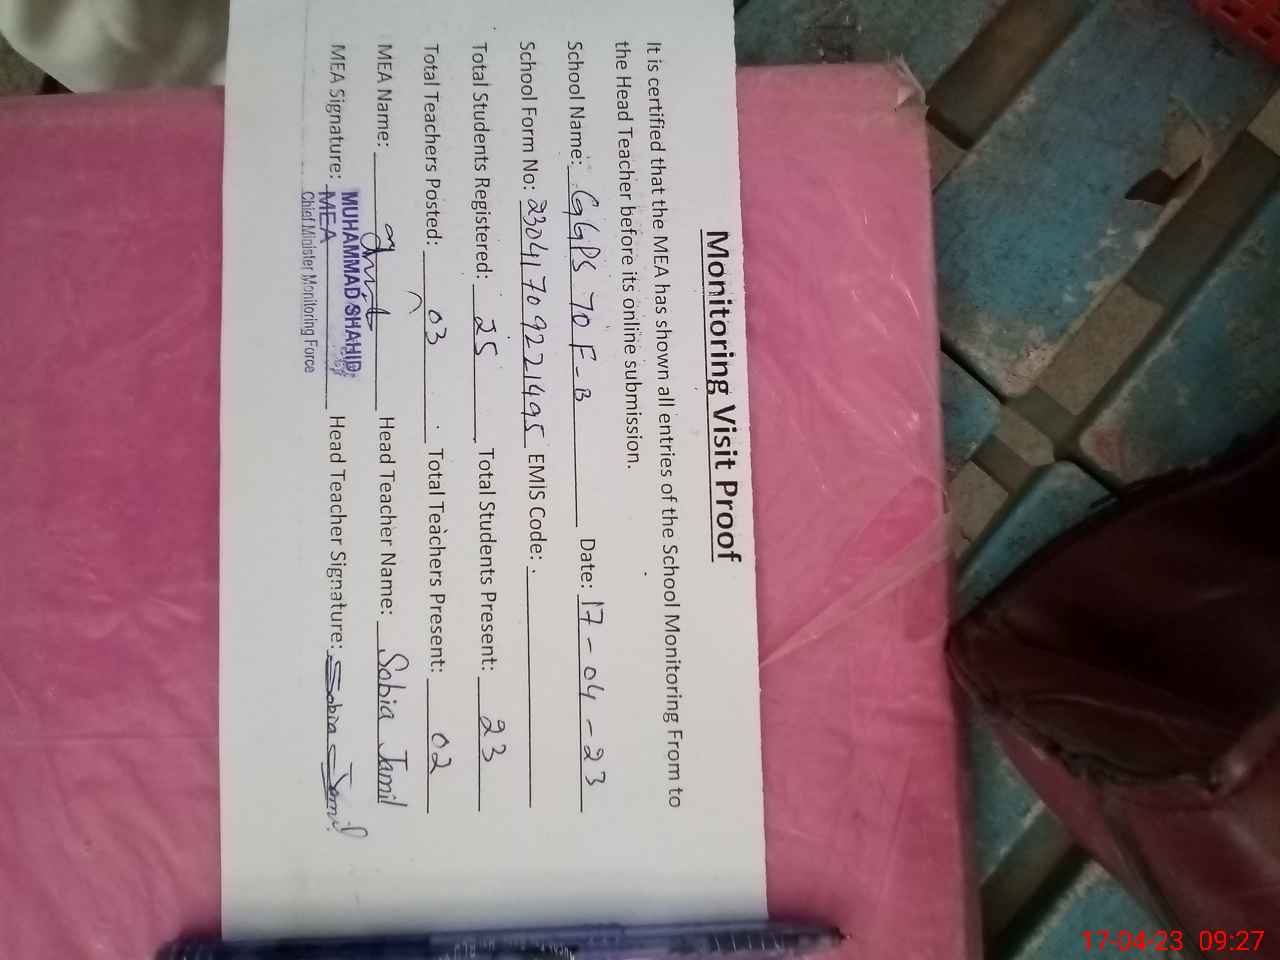 Monitoring Visit Proof
It is certified that the MEA has shown all entries of the School Monitoring From to
the Head Teacher before its online submission.
School Name: GGPS 70 F-B Date: 17-04-23
School Form No: 23041709221495 EMIS Code:
Total Students Registered: 25 Total Students Present: 23
Total Teachers Posted: 03 Total Teachers Present: 02
MEA Name: Head Teacher Name: Sobia Jamil
MUHAMMAD SHAHID
MEA Signature: MEA Head Teacher Signature: Sobia Jamil
Chief Minister Monitoring Force
17-04-23 09:27